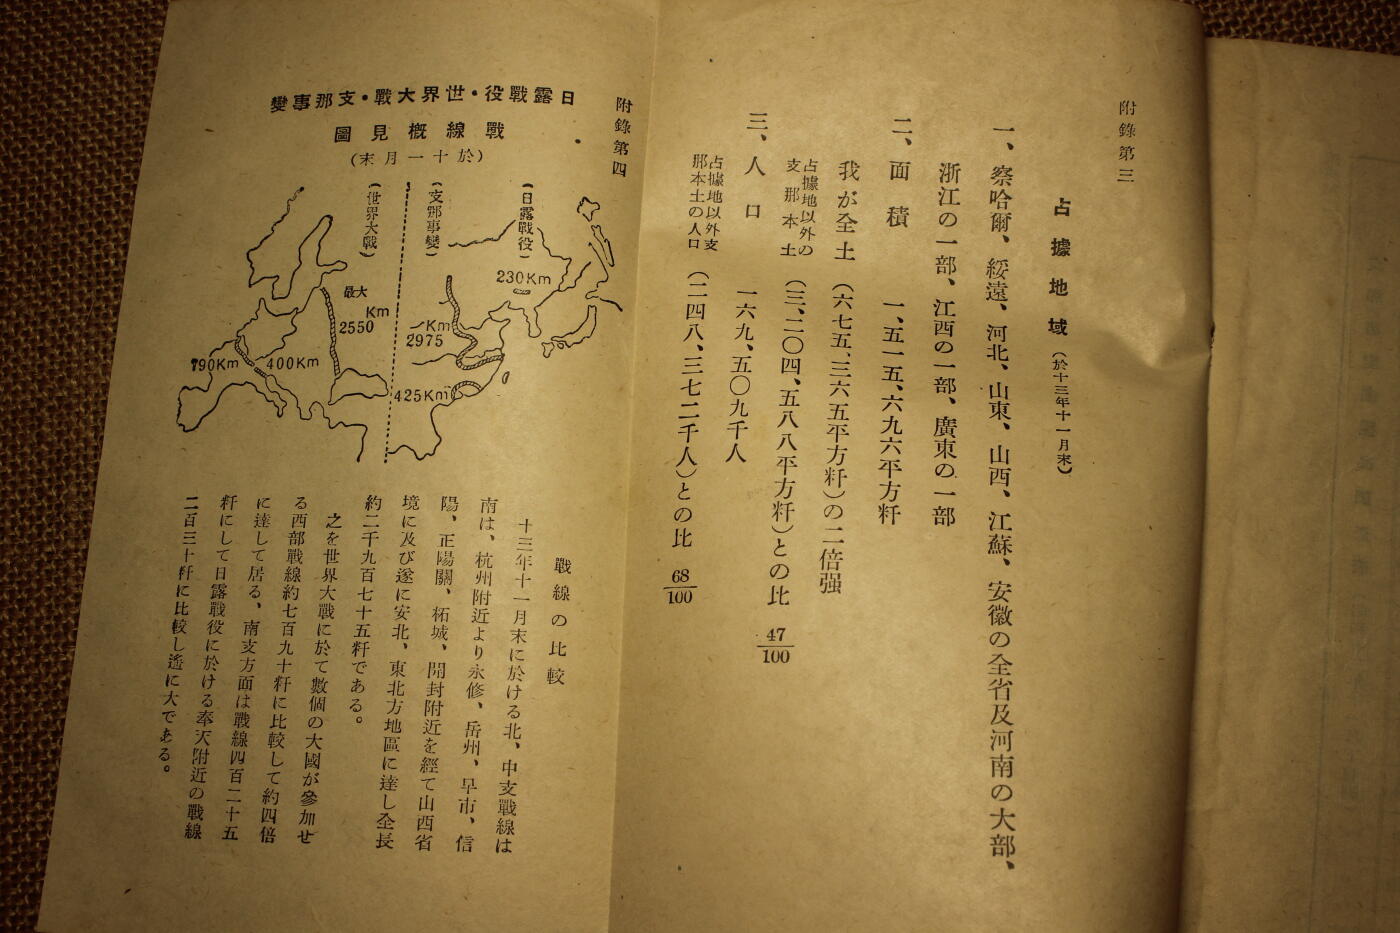 附錄第三
占據地域（於十三年十一月末）
一、察哈爾、綏遠、河北、山東、山西、江蘇、安徽の全省及河南の大部、
浙江の一部、江西の一部、廣東の一部
二、面積　一、五一五、六九六平方粁
我が全土（六七五、三六五平方粁）の二倍强
占據地以外の支那本土（三、二〇四、五八八平方粁）との比 47/100
三、人口　一六九、五〇九千人
占據地以外支那本土の人口（二四八、三七二千人）との比 68/100
附錄第四
日露戰役・世界大戰・支那事變
戰線槪見圖
（於十一月末）
（日露戰役）
230Km
（支那事變）
Km
2975
425Km
（世界大戰）
最大
Km
2550
400Km
790Km
戰線の比較
十三年十一月末に於ける北、中支戰線は
南は、杭州附近より永修、岳州、早市、信
陽、正陽關、柘城、開封附近を經て山西省
境に及び遂に安北、東北方地區に達し全長
約二千九百七十五粁である。
之を世界大戰に於て數個の大國が參加せ
る西部戰線約七百九十粁に比較して約四倍
に達して居る、南支方面は戰線四百二十五
粁にして日露戰役に於ける奉天附近の戰線
二百三十粁に比較し遙に大である。